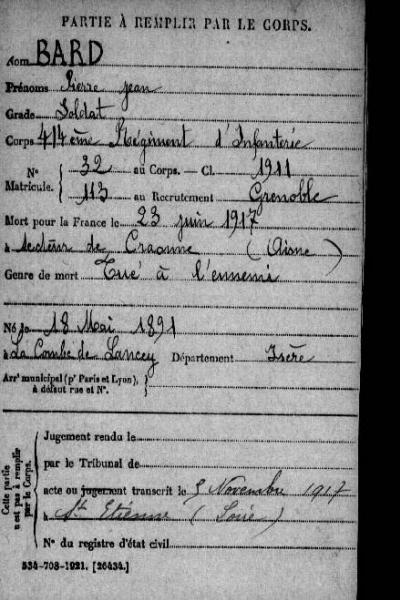 PARTIE À REMPLIR PAR LE CORPS.
Nom BARD
Prénoms Pierre Jean
Grade Soldat
Corps 414ème Régiment d'Infanterie
N° Matricule. { 32 au Corps. — Cl. 1911
113 au Recrutement Grenoble
Mort pour la France le 23 juin 1917
à secteur de Craonne (Aisne)
Genre de mort Tué à l'ennemi
Né le 18 Mai 1891
à La Combe de Lancey Département Isère
Arrt municipal (pr Paris et Lyon), à défaut rue et N°. }
Cette partie n'est pas à remplir par le Corps.
Jugement rendu le
par le Tribunal de
acte ou jugement transcrit le 5 Novembre 1917
à St Etienne (Loire)
N° du registre d'état civil
534-708-1921. [26434.]